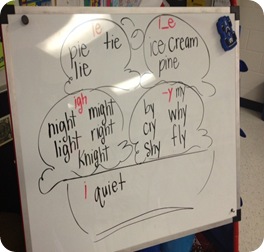 ie
pie tie
lie
i_e
ice cream
pine
igh
night might
light right
knight
-y my
by why
cry fly
shy
i quiet